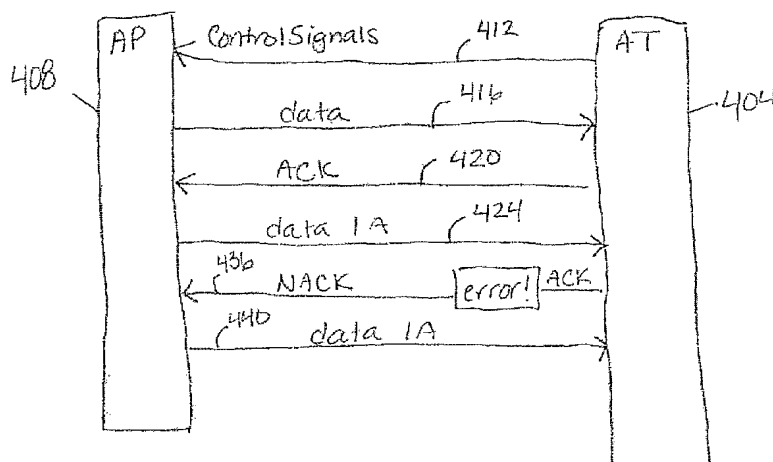 AP
Control Signals
412
AT
408
data
416
404
ACK
420
data 1A
424
436
NACK
error!
ACK
440
data 1A